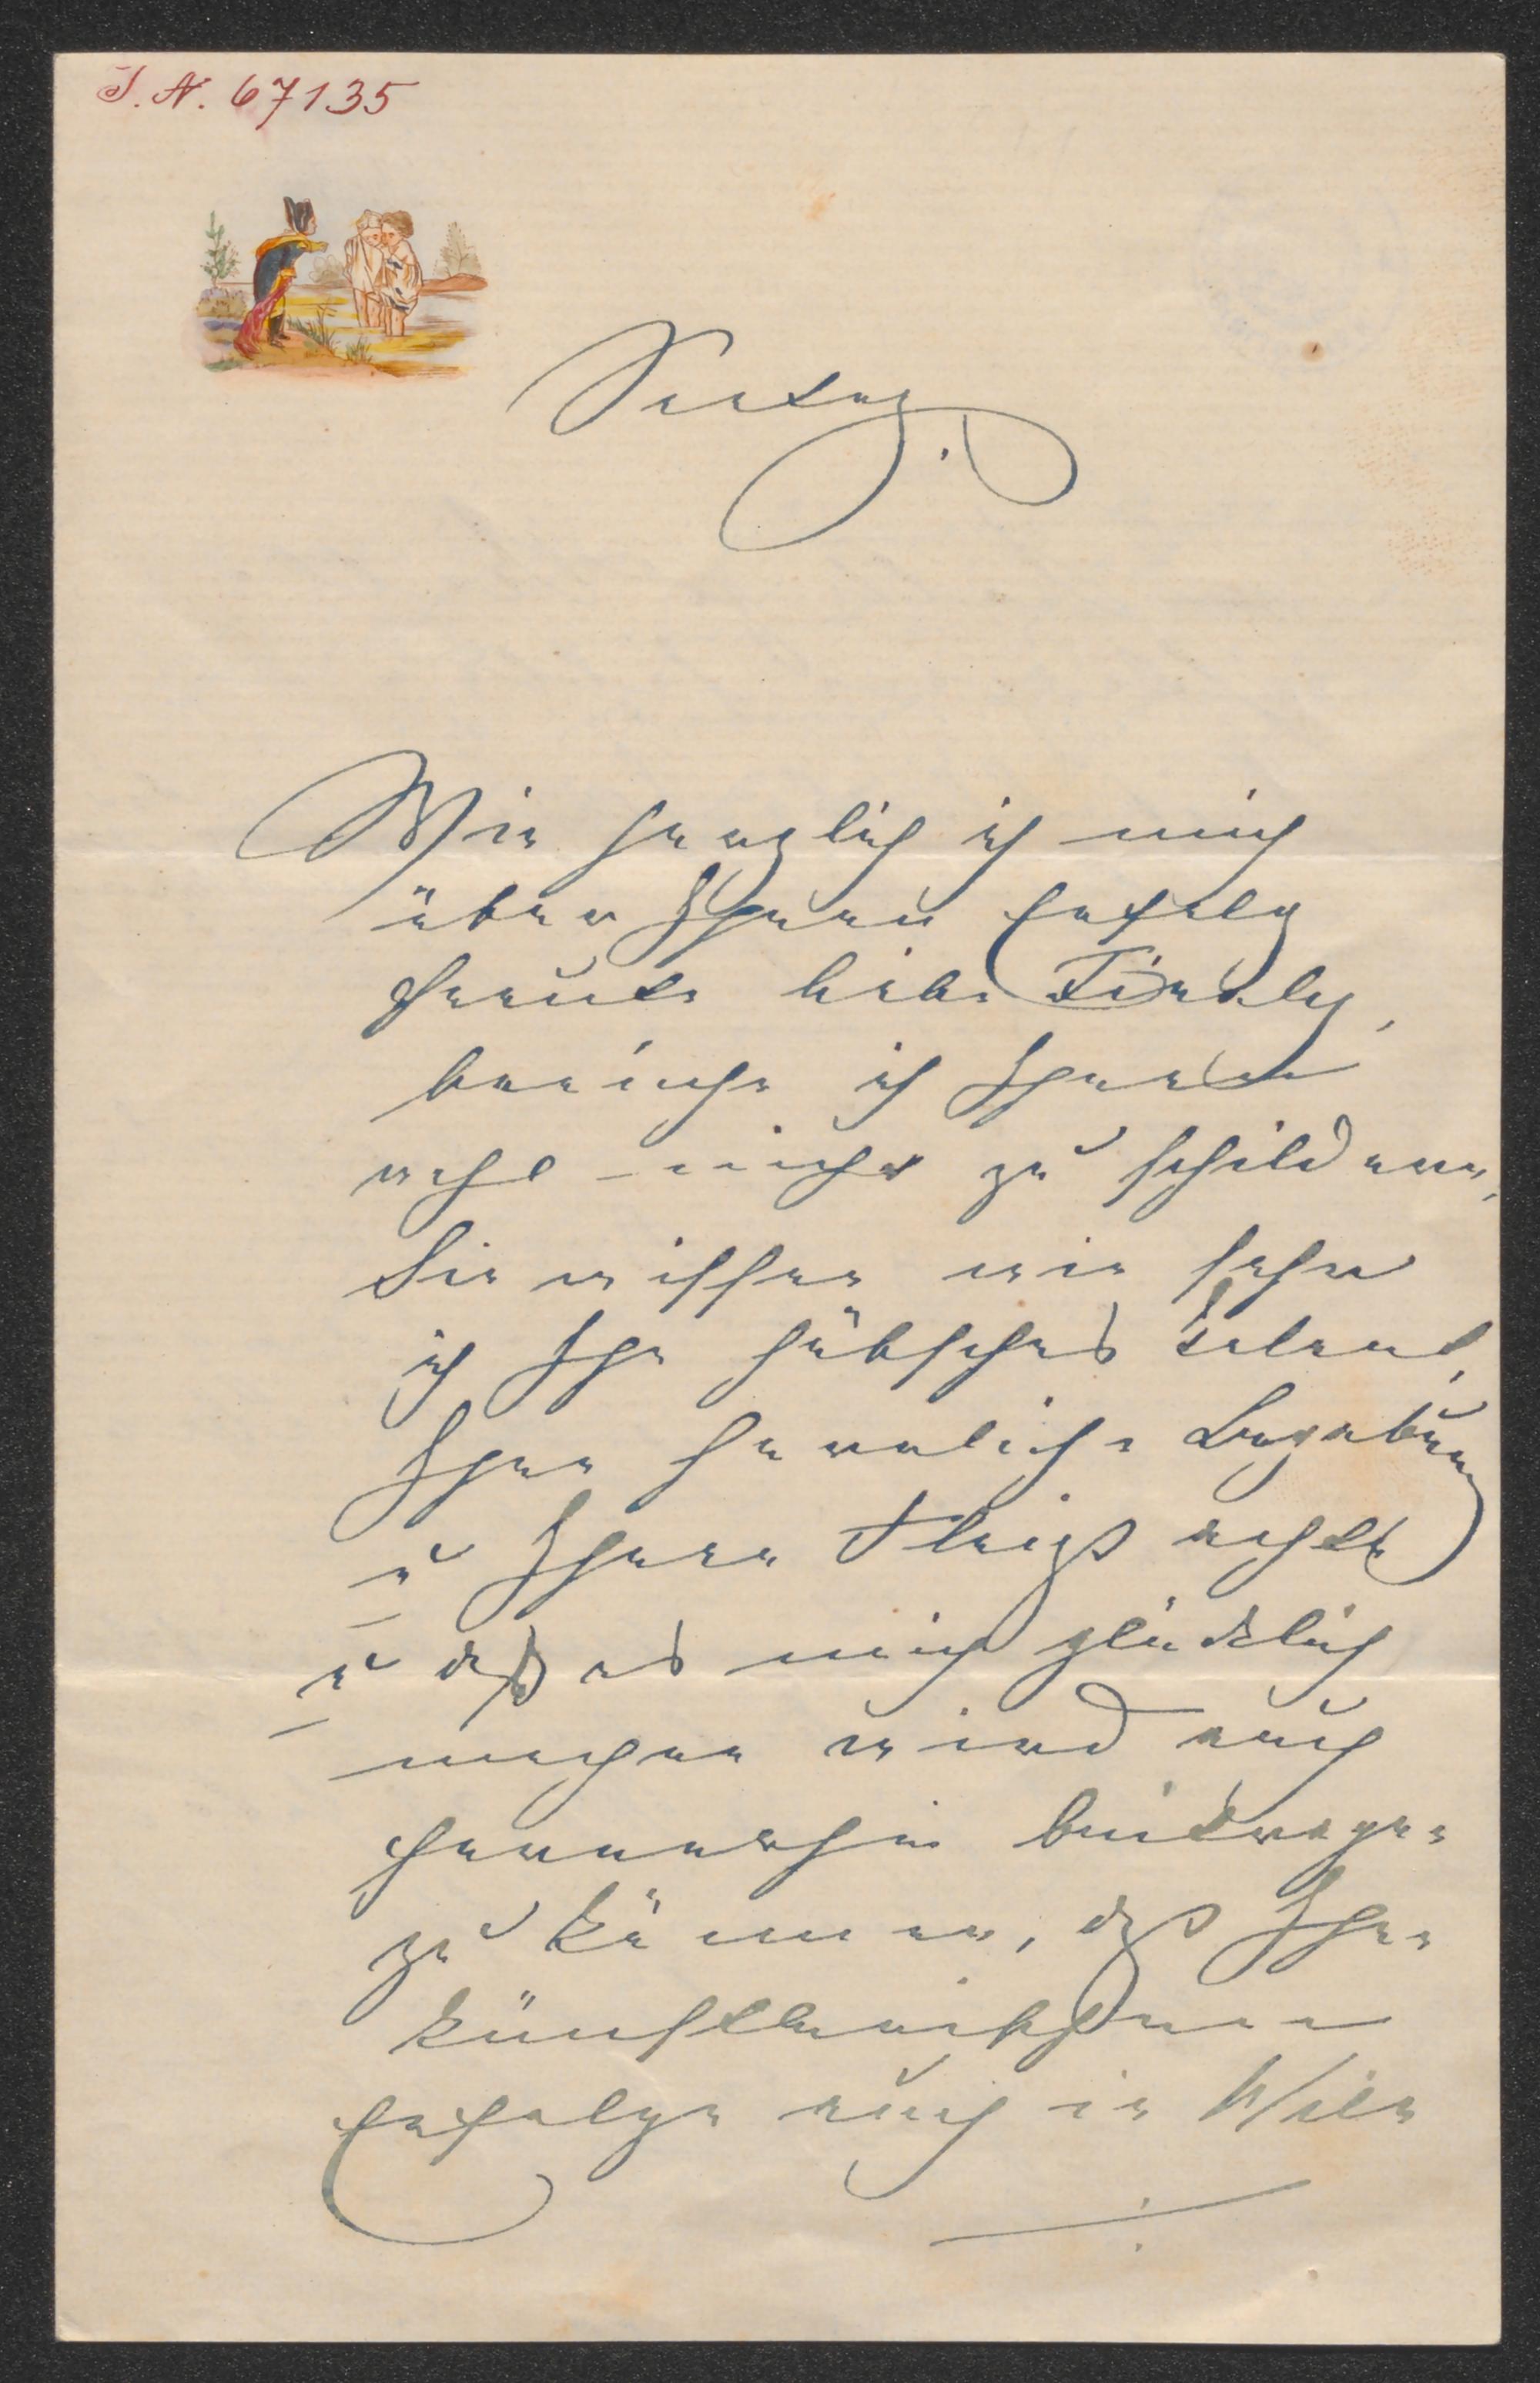 I. N. 67135
Wie herzlich ich mich
über Ihren Erfolg
freute liebe
brauche ich Ihnen
wohl nicht zu schildern,
Sie wissen wie sehr
ich Ihr hübsches Talent,
Ihre herrliche Begabung
u Ihren Fleiß achte
u daß es mich glücklich
machen wird auch
fernerhin beitragen
zu können, daß Ihre
künstlerischen
Erfolge auch in Wien